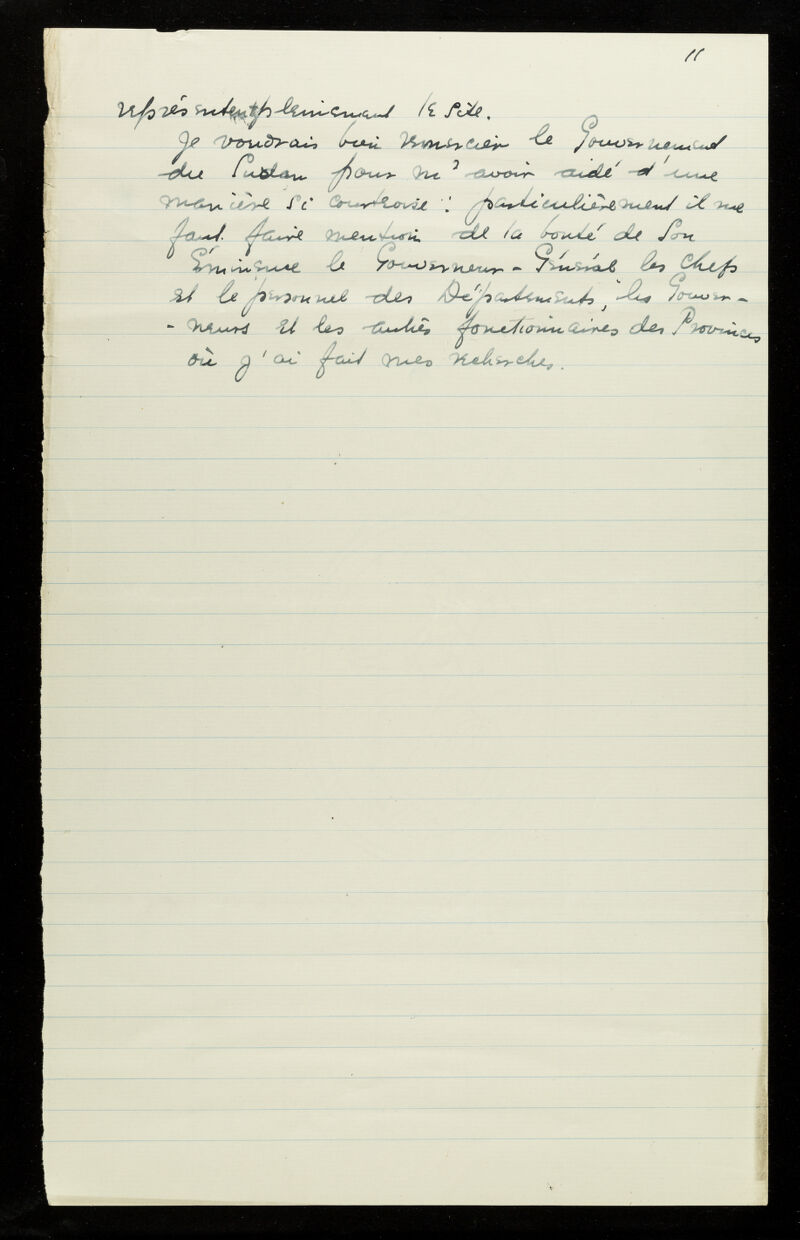 11
représentent pleinement le site.
Je voudrais bien remercier le Gouvernement
du Sudan pour m'avoir aidé d'une
manière si courtoise : particulièrement il me
faut faire mention de la bonté de Son
Éminence le Gouverneur-Général les chefs
et le personnel des Départements, les Gouver-
-neurs et les autres fonctionnaires des Provinces
où j'ai fait mes recherches.